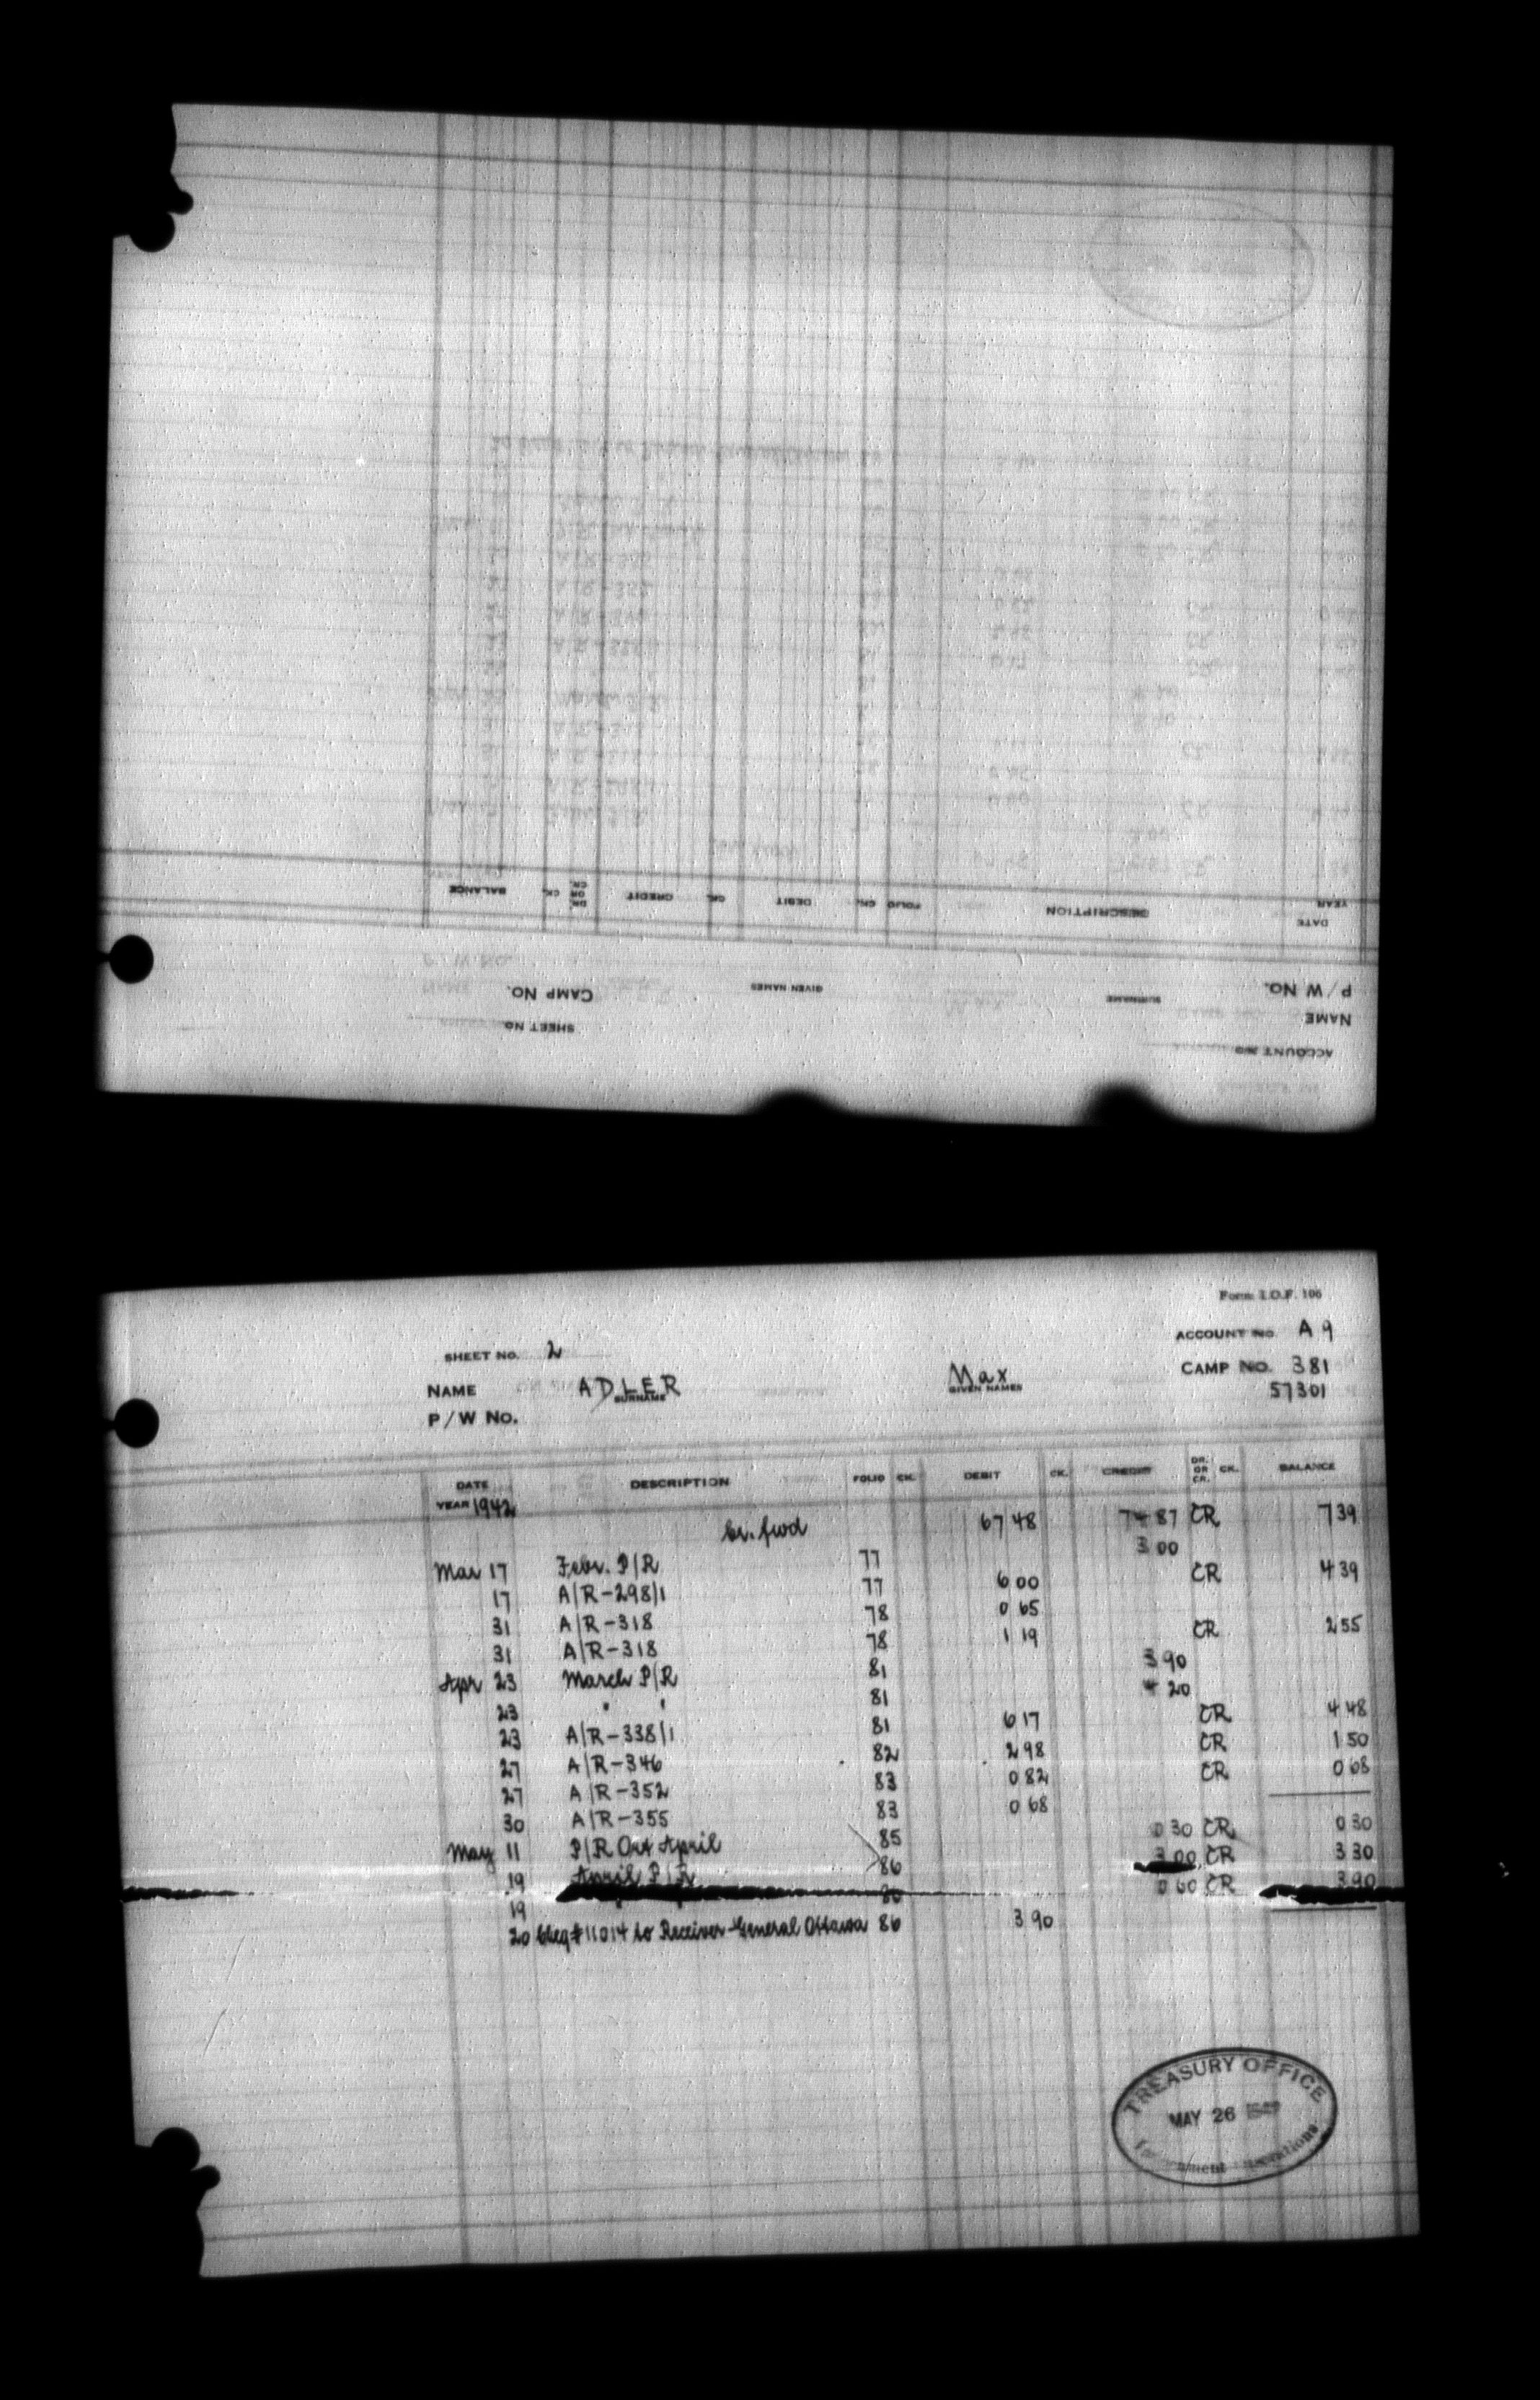 DATE
YEAR
DESCRIPTION
FOLIO
CK.
DEBIT
CK.
CREDIT
DR. OR CR.
CK.
BALANCE
P/W NO.
SURNAME
GIVEN NAMES
CAMP NO.
NAME
SHEET NO.
ACCOUNT NO.
Form I.O.F. 106
SHEET NO. 2 ACCOUNT NO. A 9
NAME ADLER Max CAMP NO. 381
SURNAME GIVEN NAMES 57301
P/W NO.
DATE DESCRIPTION FOLIO CK. DEBIT CK. CREDIT DR. OR CR. CK. BALANCE
YEAR 1942
br. fwd 67 48 74 87 CR 7 39
Mar 17 Febr. P/R 77 3 00
17 A/R-298/1 77 6 00 CR 4 39
31 A/R-318 78 0 65
31 A/R-318 78 1 19 CR 2 55
Apr 23 March P/R 81 3 90
23 " " 81 4 20
23 A/R-338/1 81 6 17 CR 4 48
27 A/R-346 82 2 98 CR 1 50
27 A/R-352 83 0 82 CR 0 68
30 A/R-355 83 0 68
May 11 P/R Oct April 85 0 30 CR 0 30
19 April P/R 86 3 00 CR 3 30
19 86 0 60 CR 3 90
20 Cheq # 11014 to Receiver-General Ottawa 86 3 90
TREASURY OFFICE
MAY 26